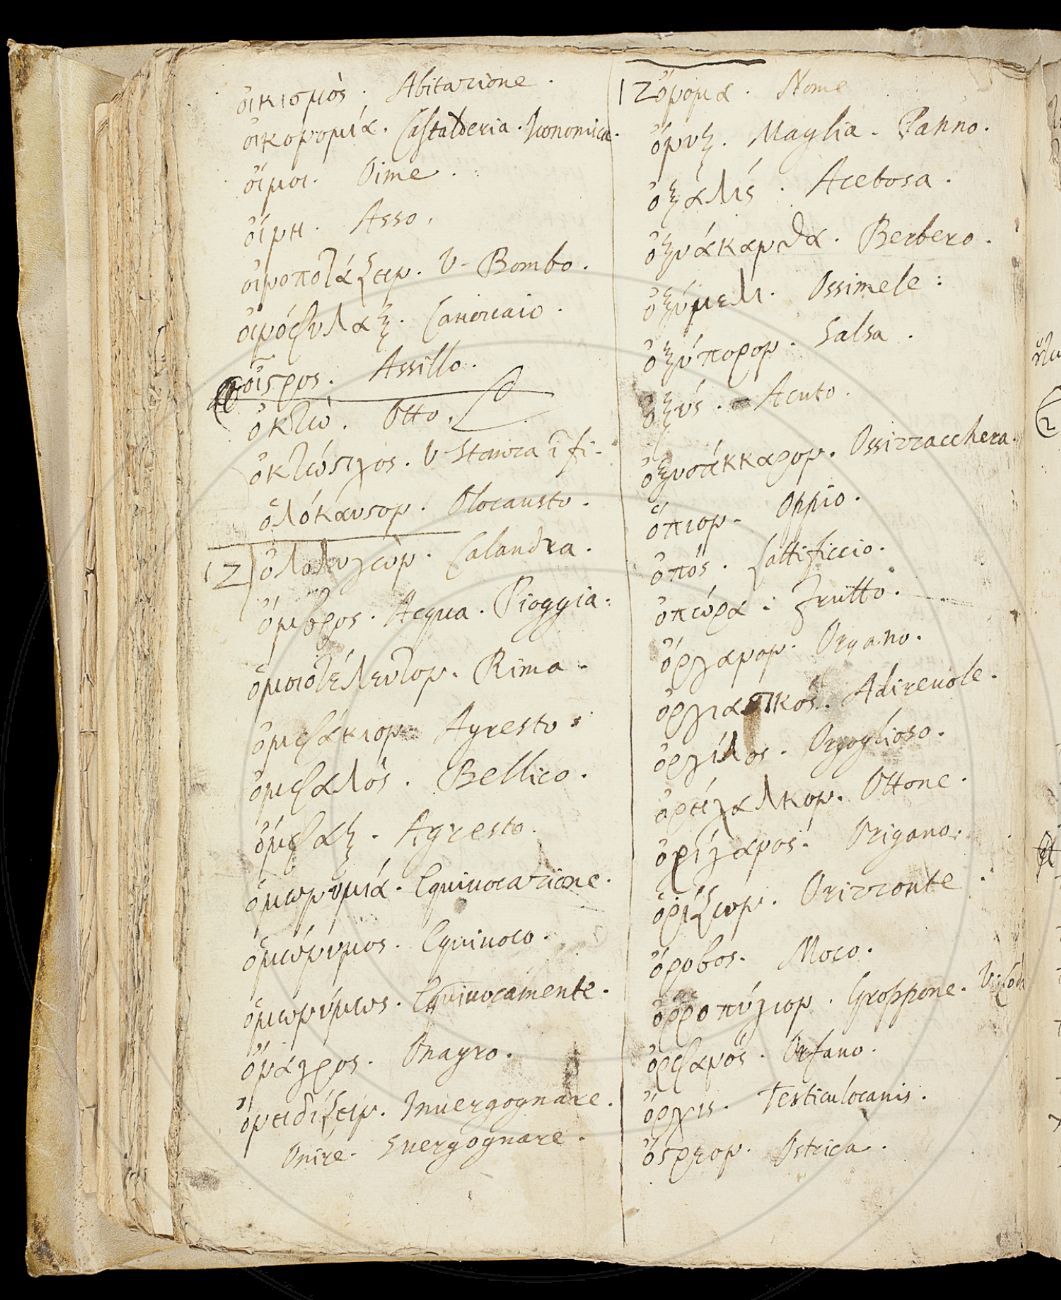 οἰκισμὸς. Abitazione.
οἰκονομιά. Castalderia. Iconomica.
οἴμοι. Oime.
οἴνη. Asso.
οἰνοποτάζειν. V. Bombo.
οἰνόφυλαξ. Canovaio.
οἶστρος. Assillo.
ὀκτώ. Otto.
ὀκτώστυλος. V. Stanza
ὁλόκαυστον. Olocausto.
12 ὀλολυγών. Calandra.
ὄμβρος. Acqua. Pioggia.
ὁμοιοτέλευτον. Rima.
ὀμφάκιον. Agresto.
ὀμφαλός. Bellico.
ὄμφαξ. Agresto.
ὁμωνυμιά. Equivocazione.
ὁμώνυμος. Equivoco.
ὁμωνύμως. Equivocamente.
ὄναγρος. Onagro.
ὀνειδίζειν. Invergognare.
Onire. Svergognare.
12 ὄνομα. Nome
ὄνυξ. Maglia. Panno.
ὀξαλίς. Acetosa.
ὀξυάκανθα. Berbero.
ὀξύμελι. Ossimele:
ὀξύπορον. Salsa.
ὀξύς. Acuto.
ὀξυσάκκαρον. Ossizzacchera.
ὄπιον. Oppio.
ὀπός. Lattificcio.
ὀπώρα. Frutto.
ὄργανον. Organo.
ὀργιαστικός. Adirevole.
ὀργίλος. Orgoglioso.
ὀρείχαλκον. Ottone.
ὀρίγανος. Origano.
ὁρίζων. Orizzonte.
ὄροβος. Moco.
ὀρροπύγιον. Groppone.
ὀρφανός. Orfano.
ὄρχις. Testiculocanis.
ὄστρεον. Ostrica.